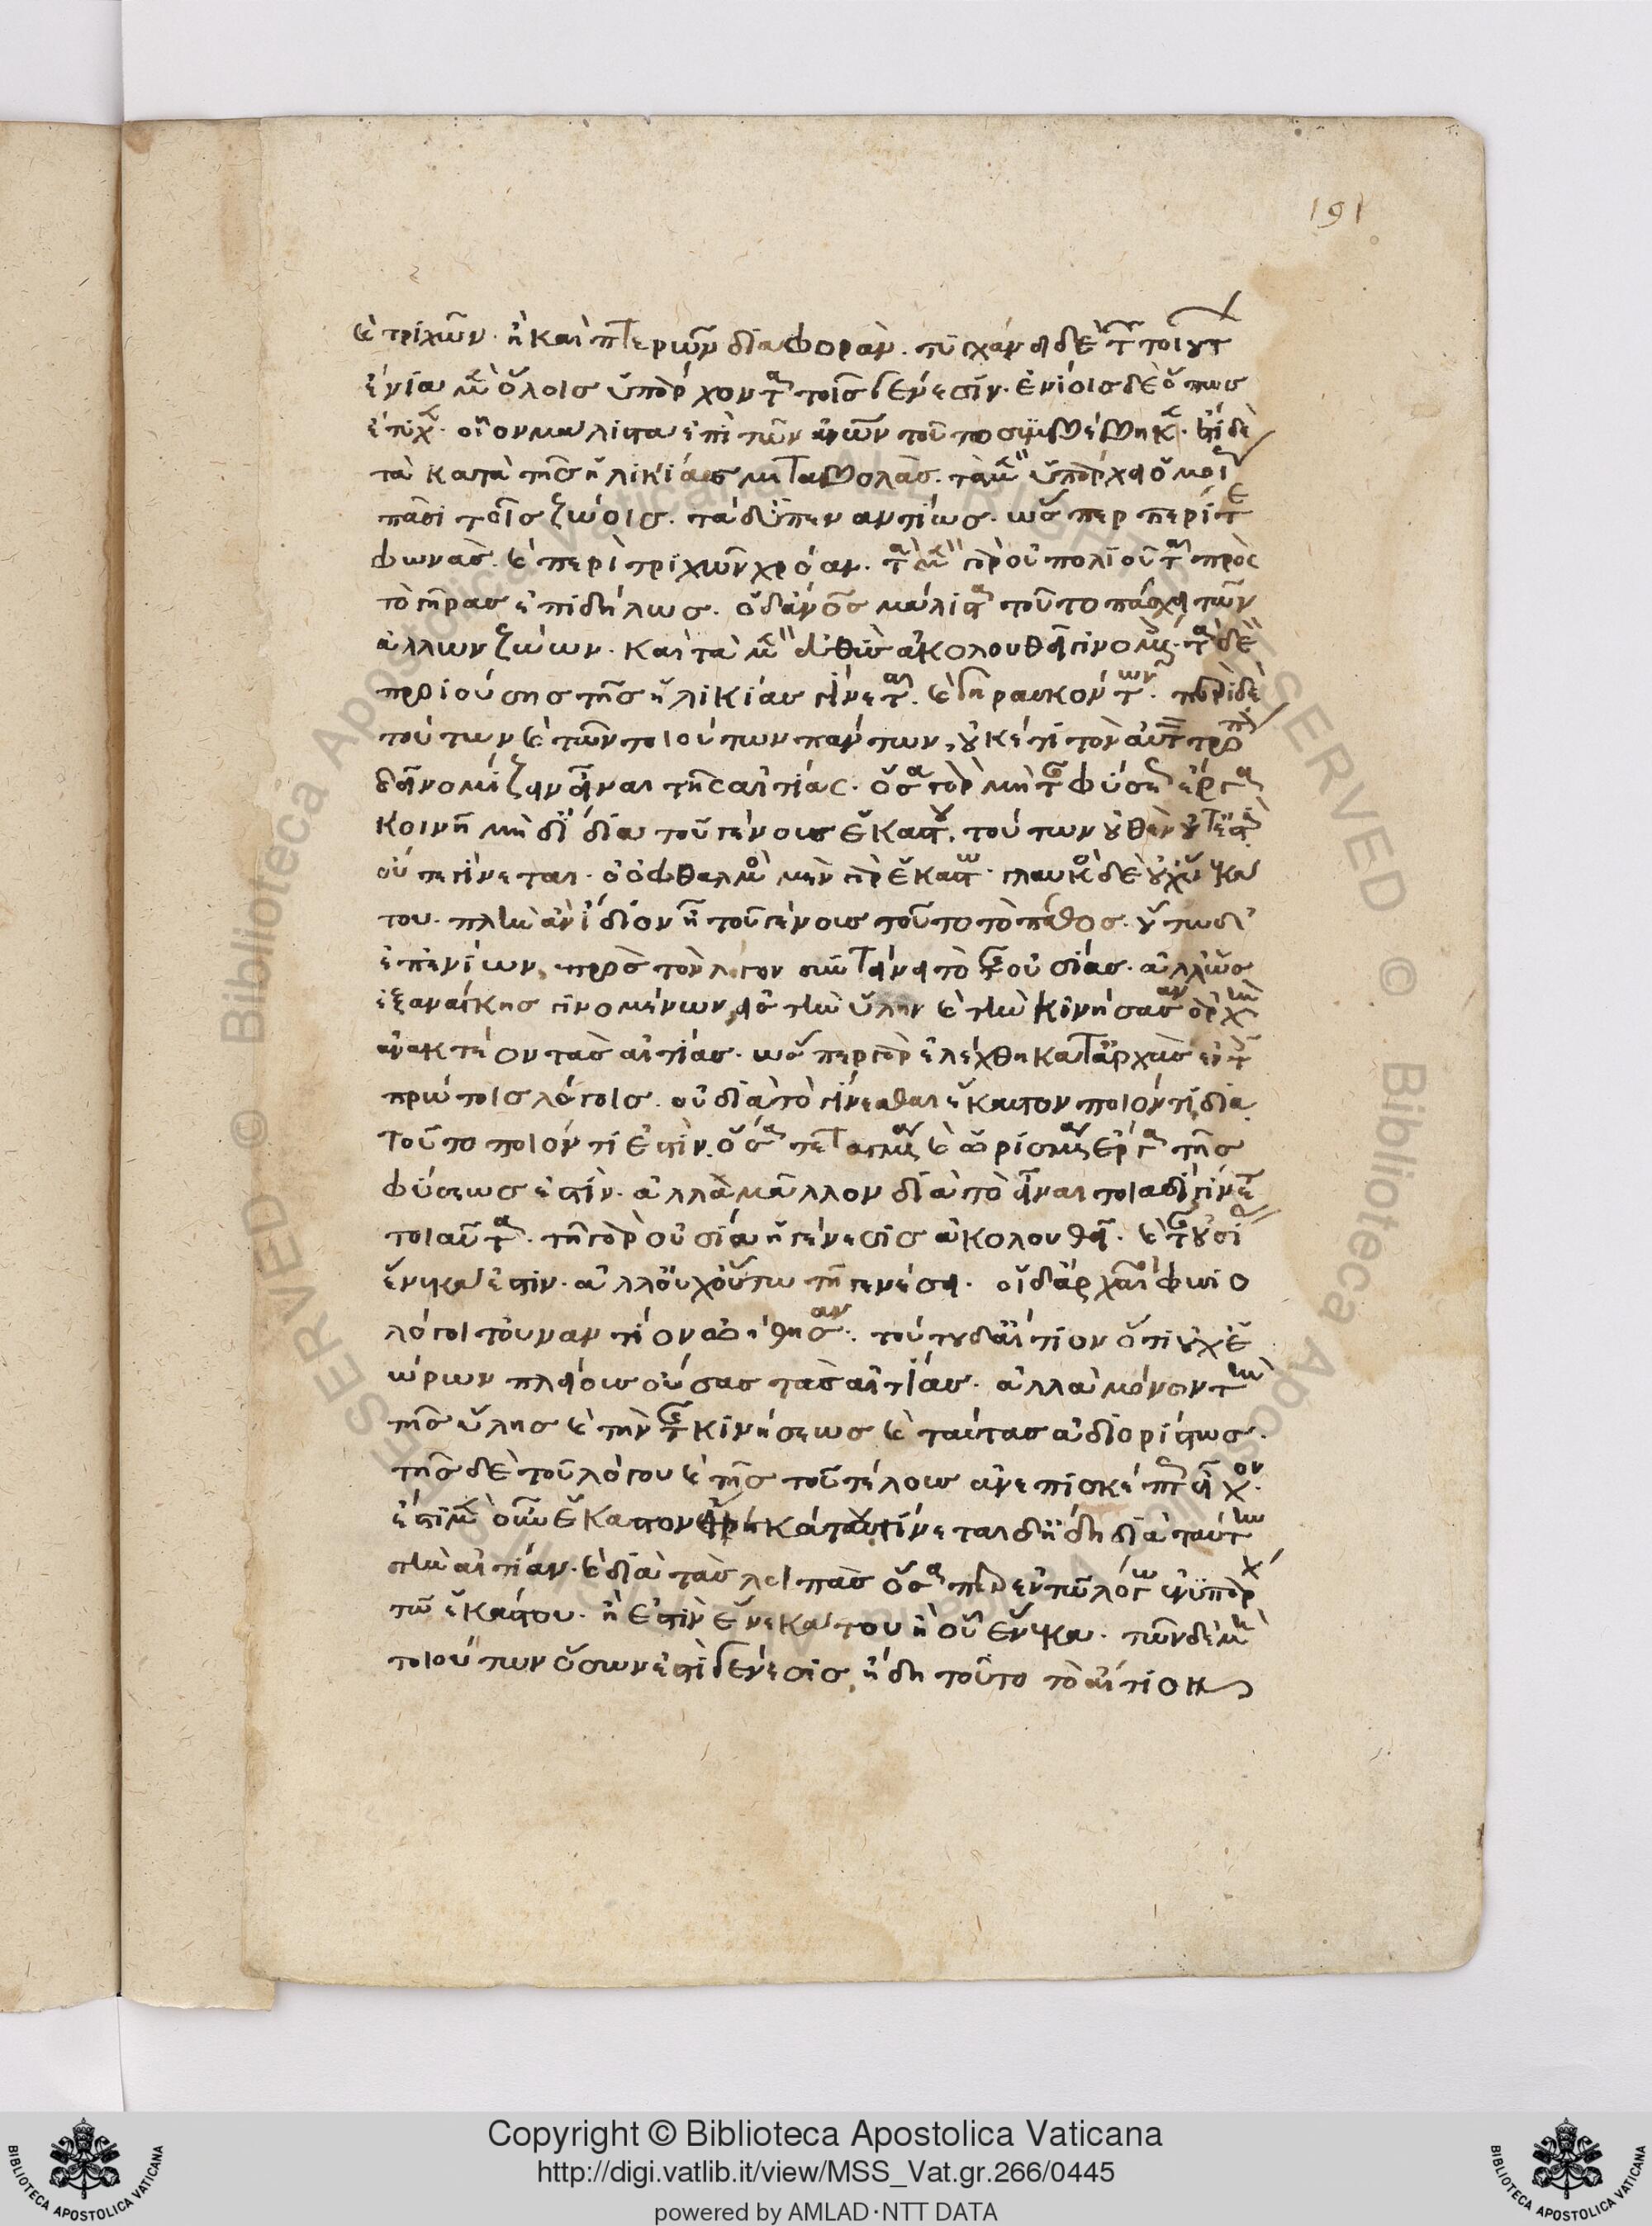 191
καὶ τριχῶν. ἢ καὶ πτερῶν διαφοράν. τυγχάνει δὲ τῶν τοιούτων
ἔνια μὲν ὅλοις ὑπάρχοντα τοῖς γένεσιν. ἐνίοις δὲ ὅπως
ἔτυχεν. οἷον μάλιστα ἐπὶ τῶν ἀνθρώπων τοῦτο συμβέβηκεν. ἔτι δὲ
τὰ κατὰ τῆς ἡλικίας μεταβολὰς. τὰ μὲν ὑπάρχει ὁμοίως
πᾶσι τοῖς ζώοις. τὰ δ' ὑπεναντίως. ὥσπερ περί τε
φωνὰς. καὶ περὶ τριχῶν χρόαν. τὰ μὲν γὰρ οὐ πολιοῦται πρὸς
τὸ γῆρας ἐπιδήλως. ὁ δ' ἄνθρωπος μάλιστα τοῦτο πάσχει τῶν
ἄλλων ζώων. καὶ τὰ μὲν εὐθὺς ἀκολουθεῖ γινομένοις. τὰ δὲ
προϊούσης τῆς ἡλικίας γίνεται. καὶ γηρασκόντων. περὶ δὲ
τούτων καὶ τῶν τοιούτων πάντων, οὐκέτι τὸν αὐτὸν τρόπον
δεῖ νομίζειν εἶναι τῆς αἰτίας. ὅσα γὰρ μὴ τῆς φύσεως ἔργα
κοινῆ μηδ' ἴδια τοῦ γένους ἑκάστου. τούτων οὐθὲν οὔτέ ἐστιν
οὔτε γίνεται. ὁ ὀφθαλμὸς μὲν γὰρ ἑκάστω. γλαυκὸς δὲ οὐχ ἕνεκα
του. πλὴν ἂν ἴδιον ἦ τοῦ γένους τοῦτο τὸ πάθος. οὔτω δ'
ἐπ' ἐνίων, πρὸς τὸν λόγον συντείνει τὸ τῆς οὐσίας. ἀλλ' ὡς
ἐξ ἀνάγκης γινομένων, εἰς τὴν ὕλην καὶ τὴν κινήσασαν ἀρχὴν
ἀνακτέον τὰς αἰτίας. ὥσπερ γὰρ ἐλέχθη κατ' ἀρχὰς ἐν τοῖς
πρώτοις λόγοις. οὐ διὰ τὸ γίνεσθαι ἕκαστον ποιόν τι, διὰ
τοῦτο ποιόν τι ἐστὶν. ὅσα τεταγμένα καὶ ὡρισμένα ἔργα τῆς
φύσεως ἐστίν. ἀλλὰ μᾶλλον διὰ τὸ εἶναι τοιαδὶ γίνεται
τοιαῦτα. τῆ γὰρ οὐσία ἡ γένεσις ἀκολουθεῖ. καὶ τῆς οὐσίας
ἕνεκα ἐστιν. ἀλλ' οὐχ οὕτω τῆ γενέσει. οἱ δ' ἀρχαῖοι φυσιο
λόγοι τοὐναντίον ὠήθησαν. τούτου δ' αἴτιον ὅτι οὐχ ἑ
ώρων πλείους οὔσας τὰς αἰτίας. ἀλλὰ μόνον τὴν
τῆς ὕλης καὶ τὴν τῆς κινήσεως καὶ ταύτας ἀδιορίστως.
τῆς δὲ τοῦ λόγου καὶ τῆς τοῦ τέλους ἀνεπισκέπτως εἶχον.
ἔστι μὲν οὖν ἕκαστον ἕνεκά του γίνεται δὴ ἤδη διὰ ταύτην
τὴν αἰτίαν. καὶ διὰ τὰς λοιπὰς ὅσα περ ἐν τῶ λόγω ἐνυπάρχει
τῶ ἑκάστου. ἢ ἐστὶν ἕνεκά του ἢ οὗ ἕνεκα. τῶν δὲ μὴ
τοιούτων ὅσων ἐστὶ γένεσις, ἤδη τοῦτο τὸ αἴτιον
Copyright © Biblioteca Apostolica Vaticana
http://digi.vatlib.it/view/MSS_Vat.gr.266/0445
powered by AMLAD·NTT DATA